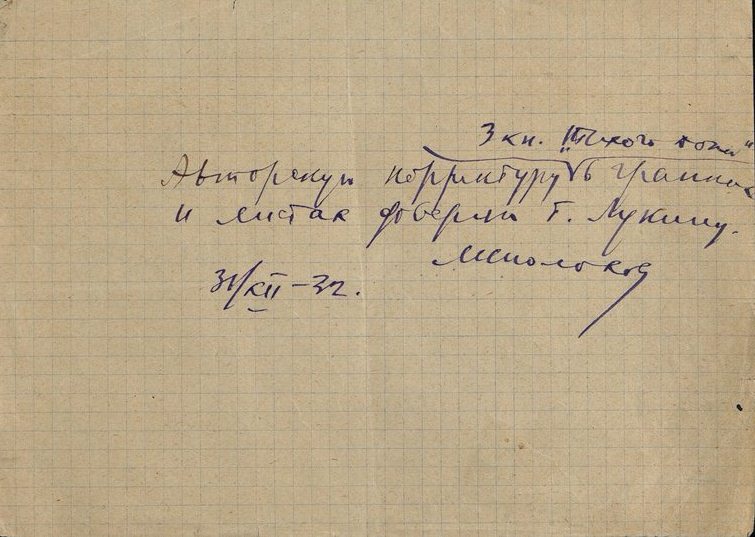 3 кн. "Тихого Дона"
Авторскую корректуру в гранках
и листах доверяю т. Лукину.
М Шолохов
31/XII – 32.